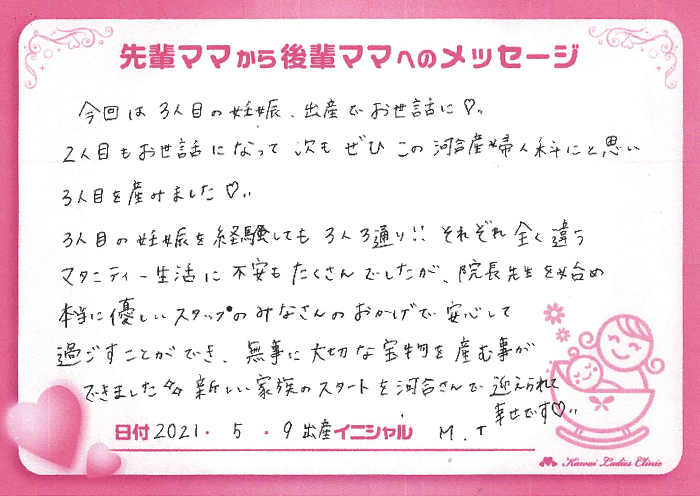 先輩ママから後輩ママへのメッセージ
今回は3人目の妊娠、出産でお世話に♡..
2人目もお世話になって次もぜひこの河合産婦人科にと思い
3人目を産みました♡..
3人目の妊娠を経験しても3人3通り!! それぞれ全く違う
マタニティー生活に不安もたくさんでしたが、院長先生を始め
本当に優しいスタッフのみなさんのおかげで安心して
過ごすことができ、無事に大切な宝物を産む事が
できました☆☆ 新しい家族のスタートを河合さんで迎えられて
幸せです♡..
日付 2021・5・9出産 イニシャル M.T
Kawai Ladies Clinic